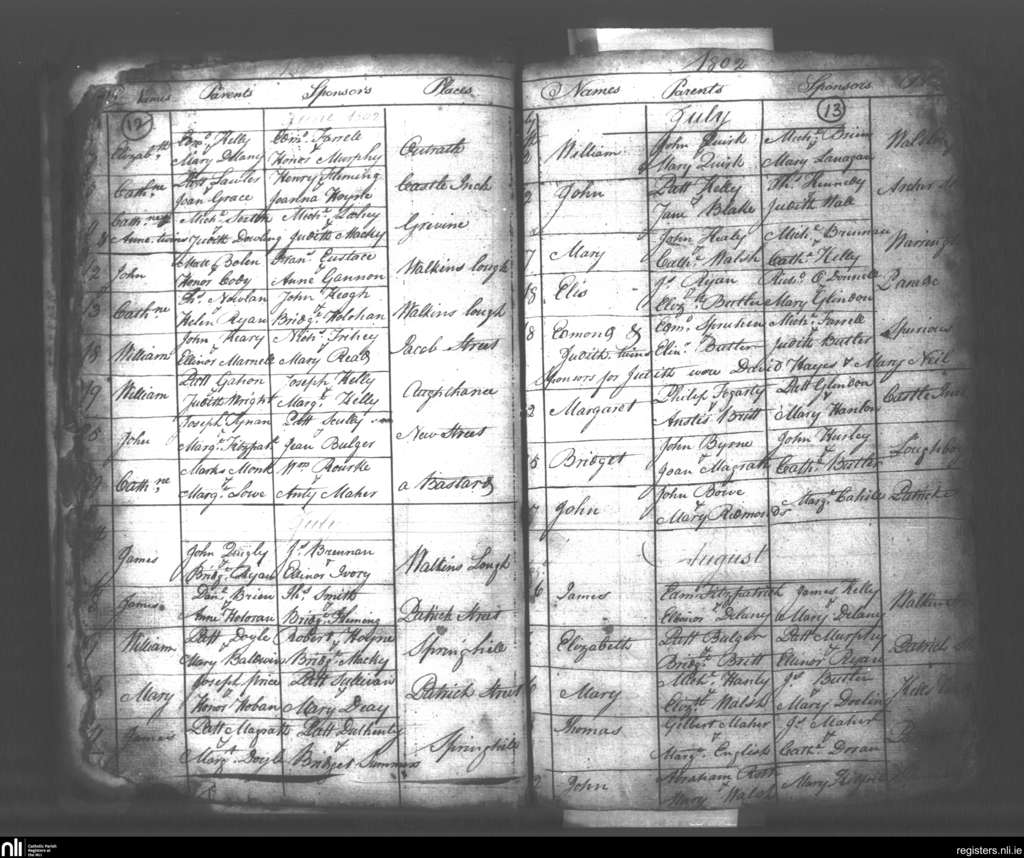 Names Parents Sponsors Places
12
June 1802
Elizabth Edmd Kelly Edmd Farrell
Mary Delany Honor Murphy Outrath
Cathne Henry Fleming
Joan Grace Joanna Hoyne Castle Inch
Cathne & Michl Michl
Anne twins Judith Dowling Judith Mackey Grevine
12 John Matt Bolen Frans Eustace
Honor Cody Anne Gannon Walkins Lough
13 Cathne Thos Nowlan John Keogh
Helen Ryan Bridgt Holohan Walkins Lough
18 William John Keary Nichs
Ellinor Marnell Mary Read Jacob Street
19 William Patt Gahon Joseph Kelly
Judith Wright Margt Kelly
John Joseph Tynan Patt Scully
Margt Fitzpatk Jean Bulger New Street
Cathne Marks Monk Wm Rourke
Margt Lowe Anty Maher a Bastard
July
James John Quigly Js Brennan
Bridgt Ryan Ellinor Ivory Walkins Lough
James Danl Brien Thos Smith
Anne Holoran Bridgt Fleming Patrick Street
9 William Patt Doyle Robert Hoyne
Mary Baldwin Bridgt Mackey Springhill
Mary Joseph price Patt Sullivan
Honor Hoban Mary Deay Patrick Street
James Patt Magrath Patt Dulhenty
Margt Doyle Bridget Summers Springhill
1802
Names Parents Sponsors
13
July
William John Quirk Michl Brien
Mary Quirk Mary Lanagan
John Patt Kelly Thos Kennedy
Jane Blake Judith Wall Archer
7 Mary John Healy Michl Brennan
Cathe Walsh Cathe Kelly
18 Elis Js Ryan Richd O Donnell
Elizth Butler Mary Glindon Parade
8 Edmond & Edmd Spruhen Michl Farrell
Judith twins Elinr Butler Judith Butler Spurious
Sponsors for Judith were David Hayes & Mary Neil
2 Margaret Philip Fogarty Patt Glindon
Anstis Britt Mary Hanlon Castle Inch
5 Bridget John Byrne John Hurley
Joan Magrath Cathe Butler
7 John John Bowe Margt Cahill
Mary Redmonds Patrick
August
6 James Edmd Fitzpatrick James Kelly
Ellinor Delaney Mary Delany Walkins
Elizabeth Patt Bulger Patt Murphy
Bridgt Britt Elinor Ryan Patrick
6 Mary Michl Hanly Js Butler
Elizth Walsh Mary Dorling Kells
Thomas Gilbert Maher Js Maher
Margt English Cathe Doran
2 John Abraham
Mary Walsh Mary
nli Catholic Parish Registers at the NLI
registers.nli.ie